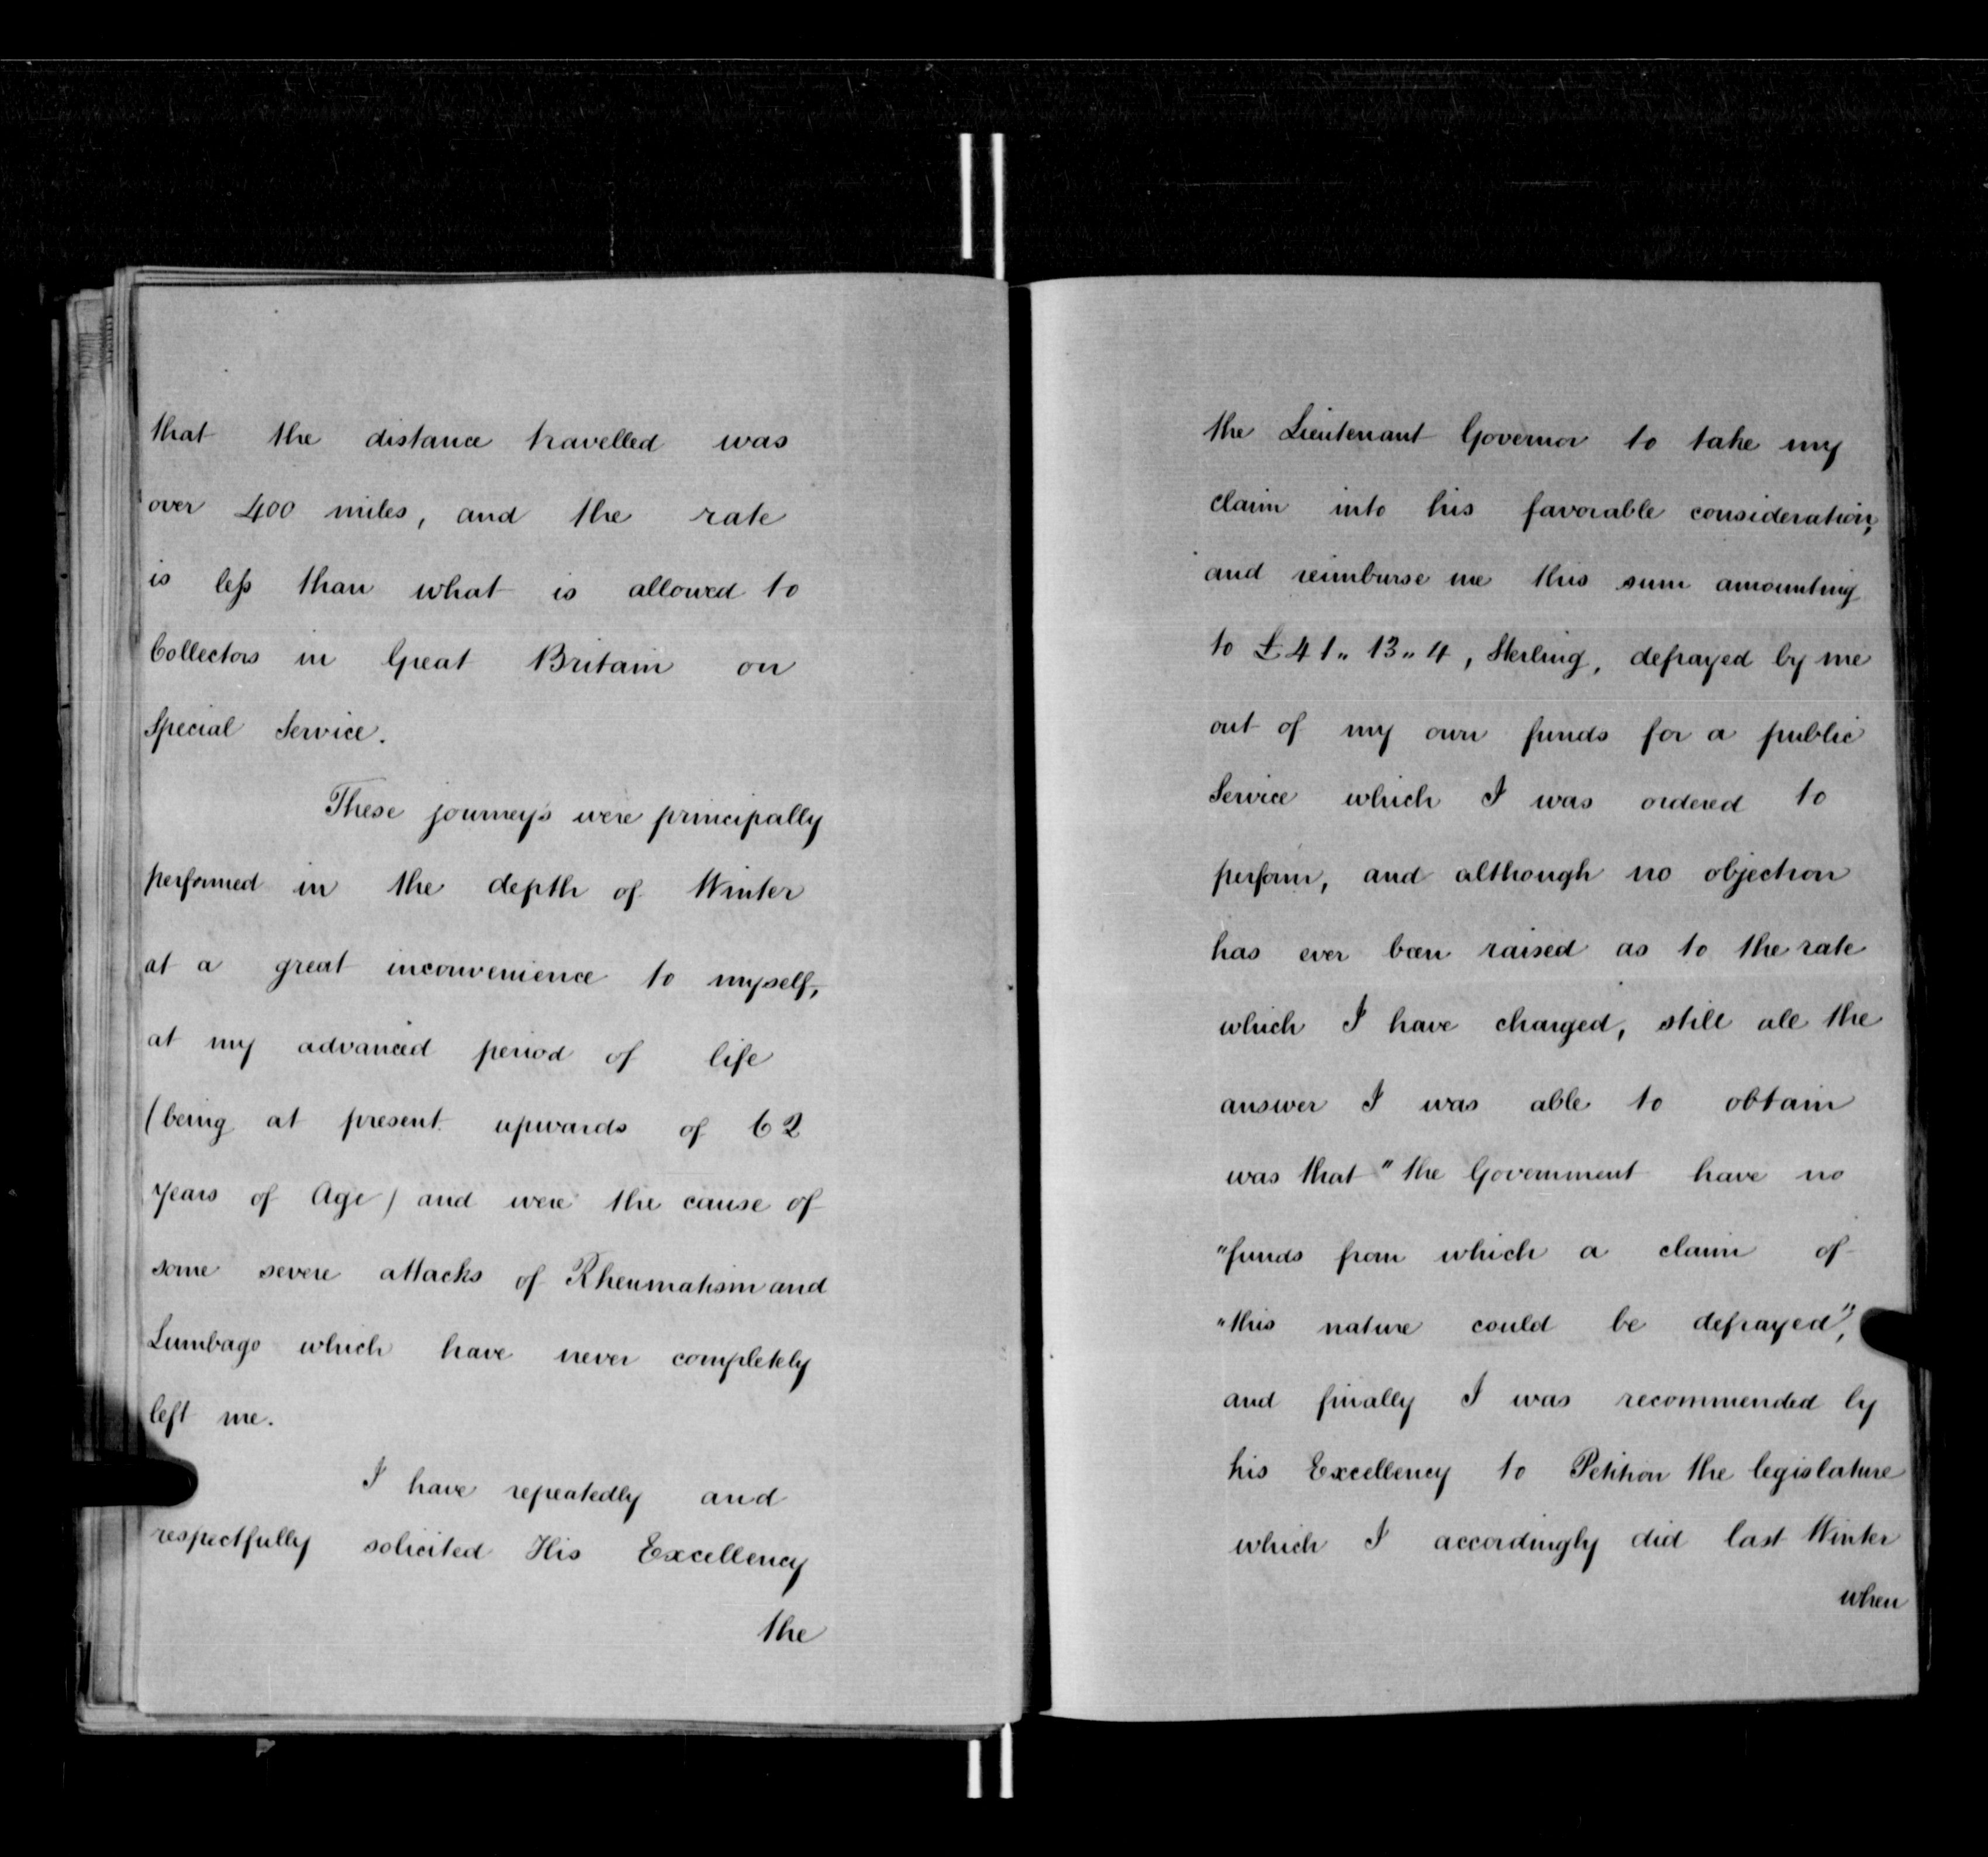 that the distance travelled was
over 400 miles, and the rate
is leſs than what is allowed to
Collectors in Great Britain on
Special Service.
These journeys were principally
performed in the depth of Winter
at a great inconvenience to myself,
at my advanced period of life
(being at present upwards of 62
years of Age) and were the cause of
some severe attacks of Rheumatism and
Lumbago which have never completely
left me.
I have repeatedly and
respectfully solicited His Excellency
the
the Lieutenant Governor to take my
claim into his favorable consideration,
and reimburse me this sum amounting
to £41„ 13„ 4, Sterling, defrayed by me
out of my own funds for a public
Service which I was ordered to
perform, and although no objection
has ever been raised as to the rate
which I have charged, still all the
answer I was able to obtain
was that "the Government have no
"funds from which a claim of
"this nature could be defrayed",
and finally I was recommended by
his Excellency to Petition the legislature
which I accordingly did last Winter
when